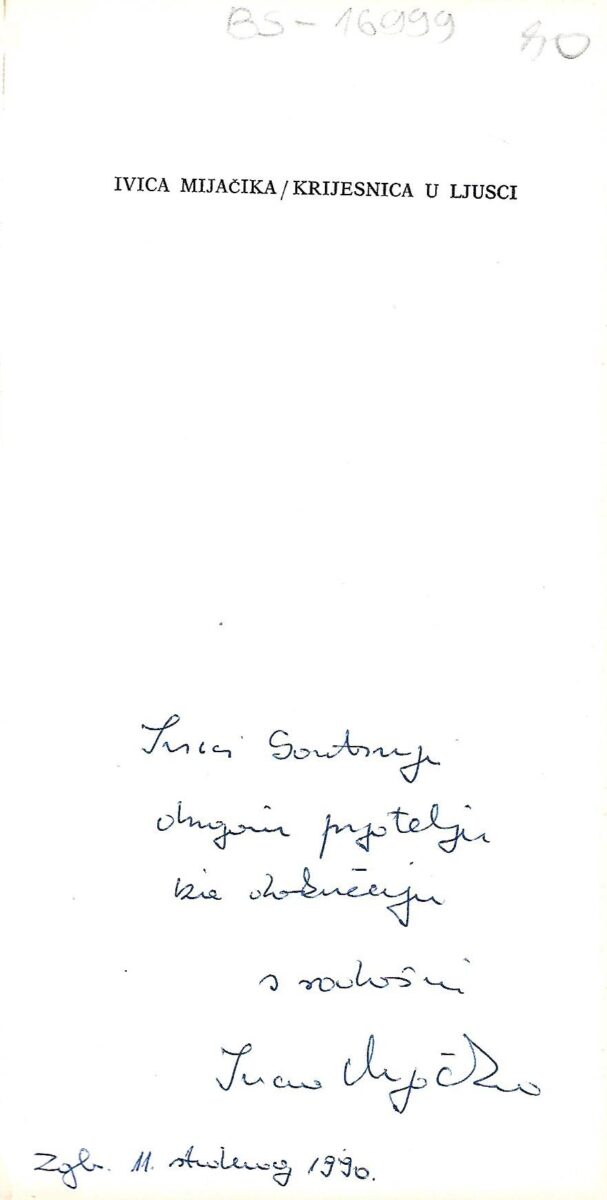 BS-16999 80
IVICA MIJAČIKA/KRIJESNICA U LJUSCI
Ivici
dragom prijatelju
na
s radošću
Ivica Mijačika
Zgb. 11. studenog 1990.